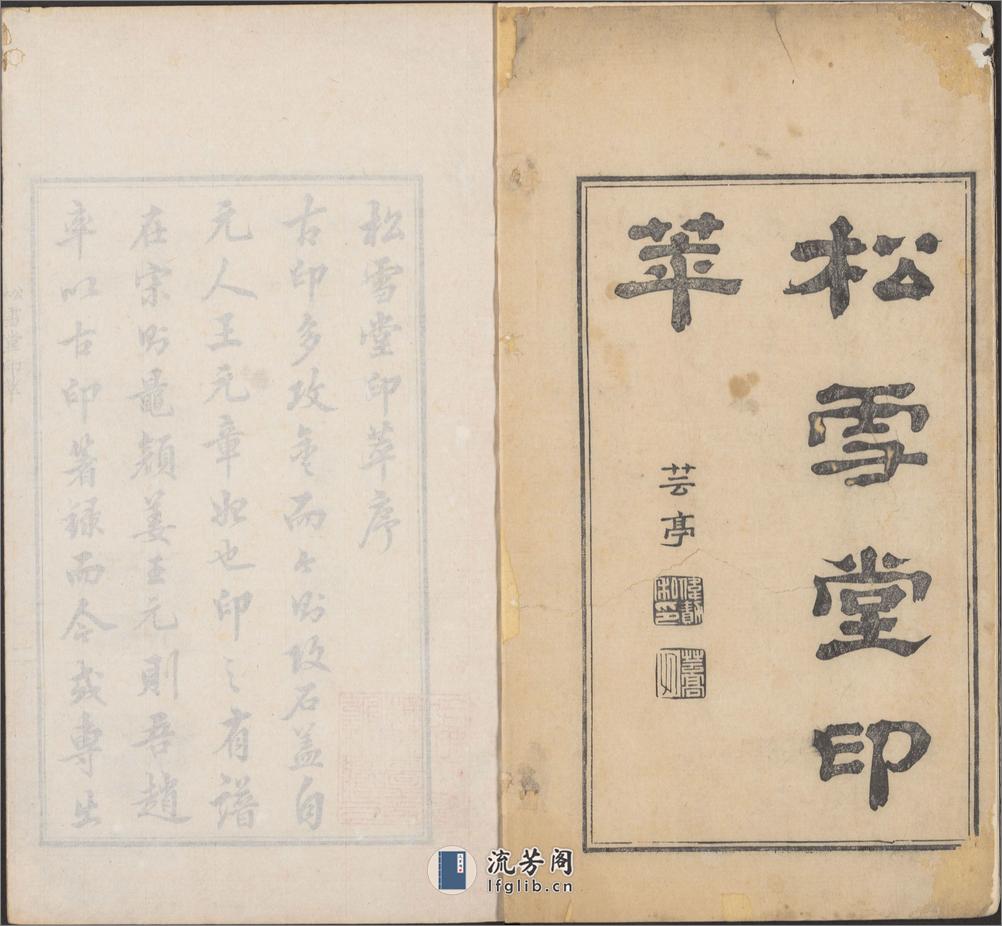 松雪堂印
萃
芸亭
松雪堂印萃序
古印多攻金而今則攻石蓋自
元人王元章始也印之有譜
在宋則鼂顏姜王元則吾趙
率以古印著錄而今或專出
松雪堂印萃
流芳阁
lfglib.cn